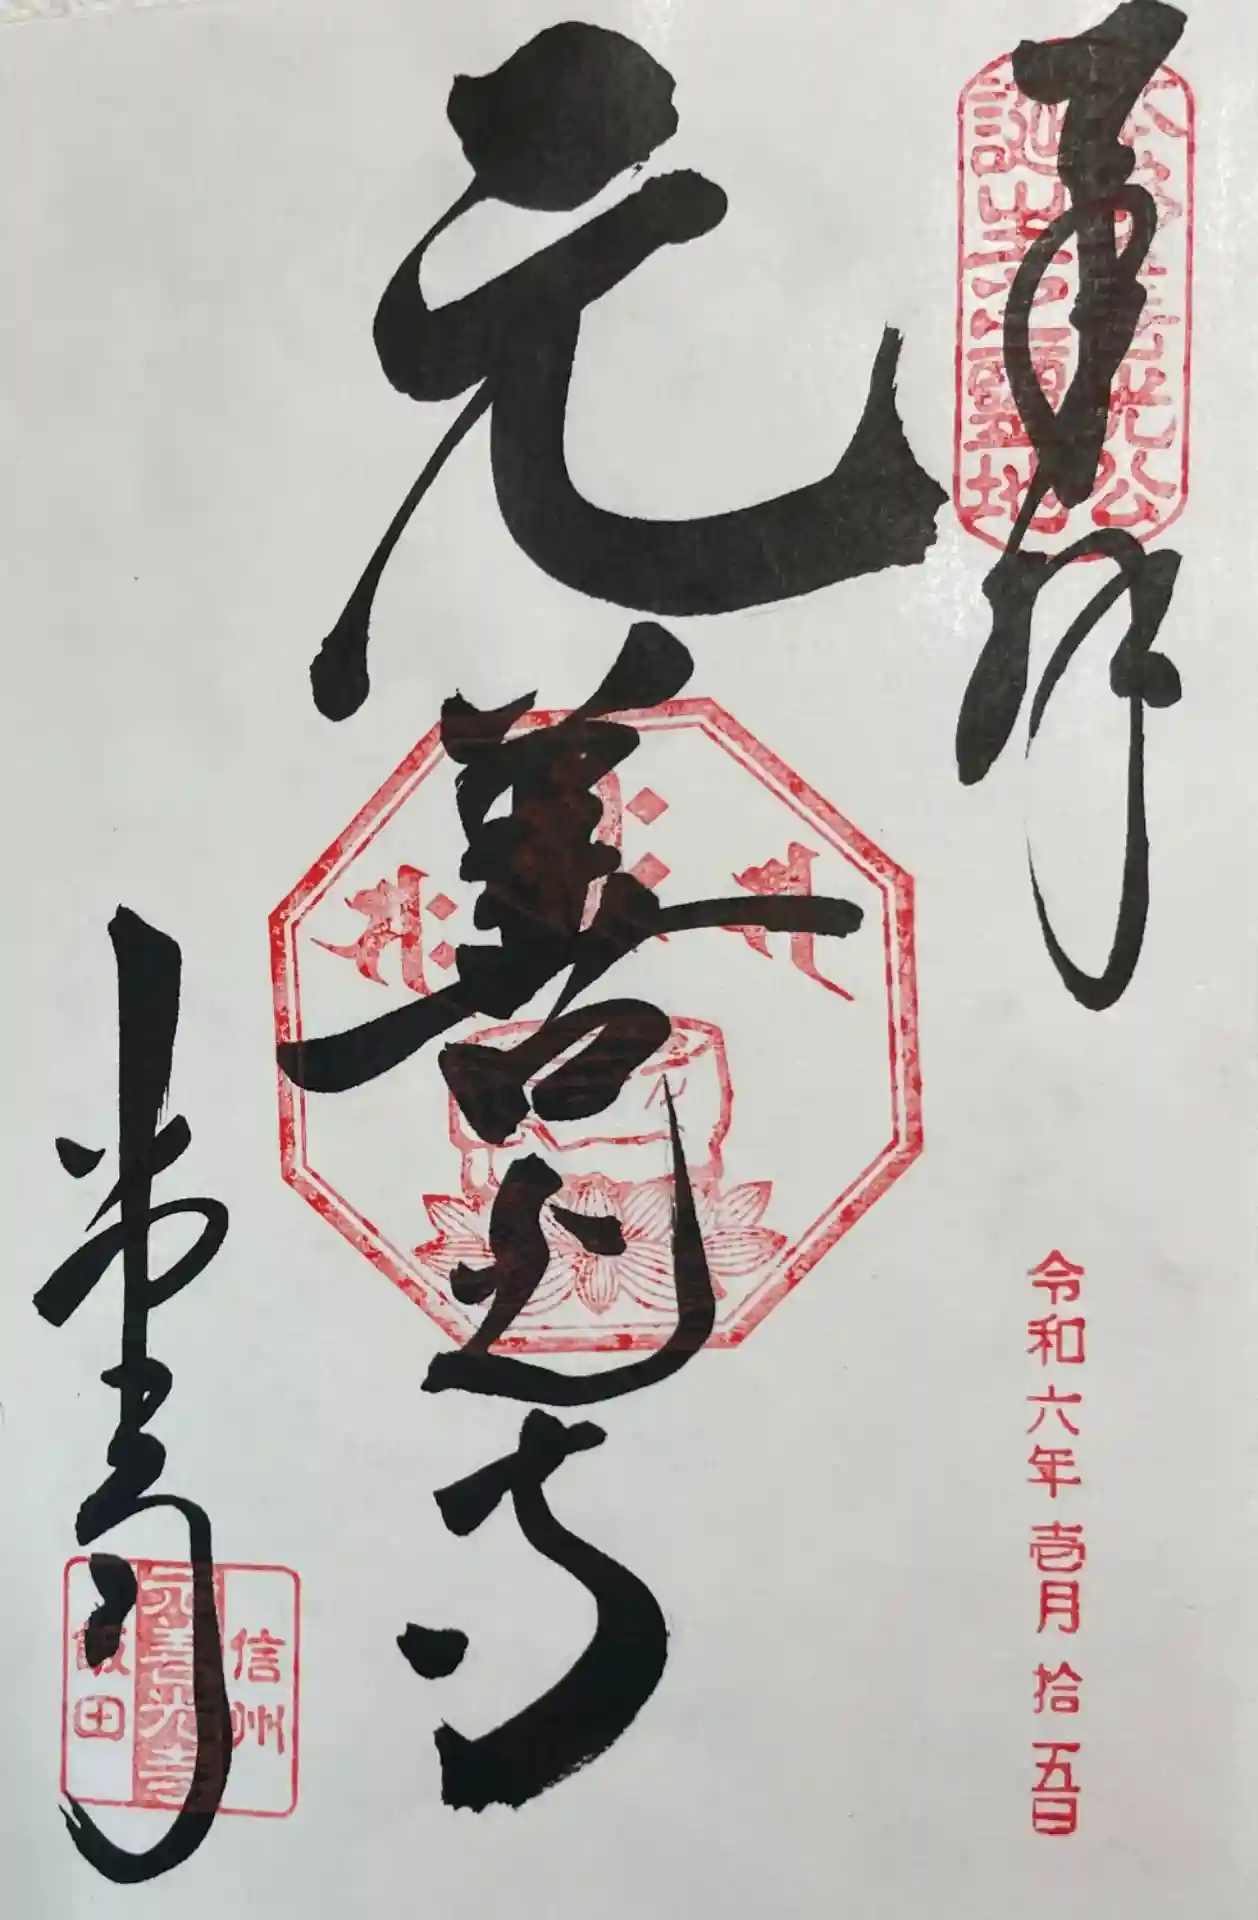 奉拝
本多善光公
誕生之靈地
令和六年壱月拾五日
元善光寺
信州
元善光寺
飯田